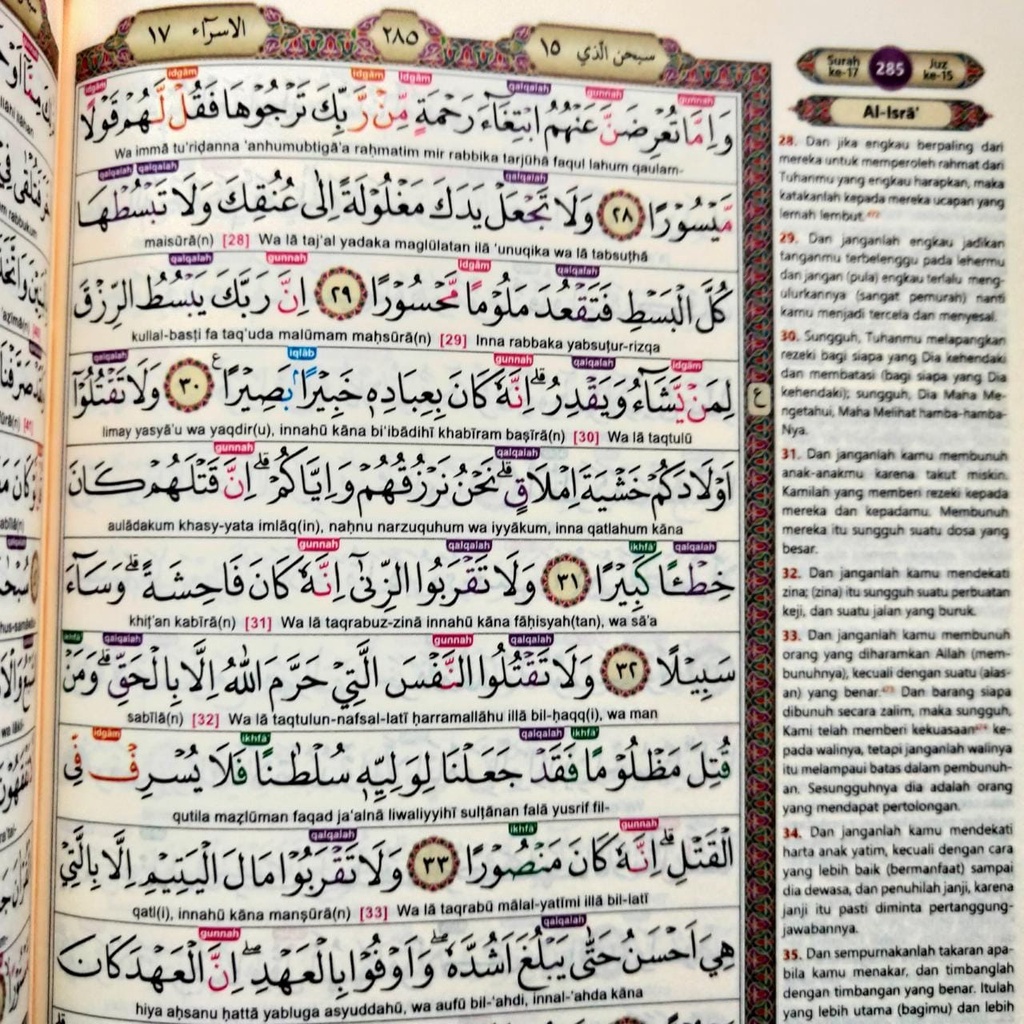 الاسرآء ١٧
٢٨٥
سبحن الذي ١٥
وَاِمَّا تُعْرِضَنَّ عَنْهُمُ ابْتِغَاۤءَ رَحْمَةٍ مِّنْ رَّبِّكَ تَرْجُوْهَا فَقُلْ لَّهُمْ قَوْلًا
Wa immā tu'riḍanna 'anhumubtigā'a raḥmatim mir rabbika tarjūhā faqul lahum qaulam-
مَّيْسُوْرًا ٢٨ وَلَا تَجْعَلْ يَدَكَ مَغْلُوْلَةً اِلٰى عُنُقِكَ وَلَا تَبْسُطْهَا
maisūrā(n) [28] Wa lā taj'al yadaka maglūlatan ilā 'unuqika wa lā tabsuṭhā
كُلَّ الْبَسْطِ فَتَقْعُدَ مَلُوْمًا مَّحْسُوْرًا ٢٩ اِنَّ رَبَّكَ يَبْسُطُ الرِّزْقَ
kullal-basṭi fa taq'uda malūmam maḥsūrā(n) [29] Inna rabbaka yabsuṭur-rizqa
لِمَنْ يَّشَاۤءُ وَيَقْدِرُ ۗاِنَّهٗ كَانَ بِعِبَادِهٖ خَبِيْرًاۢ بَصِيْرًا ࣖ ٣٠ وَلَا تَقْتُلُوْٓا
limay yasyā'u wa yaqdir(u), innahū kāna bi'ibādihī khabīram baṣīrā(n) [30] Wa lā taqtulū
اَوْلَادَكُمْ خَشْيَةَ اِمْلَاقٍۗ نَحْنُ نَرْزُقُهُمْ وَاِيَّاكُمْۗ اِنَّ قَتْلَهُمْ كَانَ
aulādakum khasy-yata imlāq(in), naḥnu narzuquhum wa iyyākum, inna qatlahum kāna
خِطْـًٔا كَبِيْرًا ٣١ وَلَا تَقْرَبُوا الزِّنٰىٓ اِنَّهٗ كَانَ فَاحِشَةً ۗوَسَاۤءَ
khiṭ'an kabīrā(n) [31] Wa lā taqrabuz-zinā innahū kāna fāḥisyah(tan), wa sā'a
سَبِيْلًا ٣٢ وَلَا تَقْتُلُوا النَّفْسَ الَّتِيْ حَرَّمَ اللّٰهُ اِلَّا بِالْحَقِّۗ وَمَنْ
sabīlā(n) [32] Wa lā taqtulun-nafsal-latī ḥarramallāhu illā bil-ḥaqq(i), wa man
قُتِلَ مَظْلُوْمًا فَقَدْ جَعَلْنَا لِوَلِيِّهٖ سُلْطٰنًا فَلَا يُسْرِفْ فِّى
qutila maẓlūman faqad ja'alnā liwaliyyihī sulṭānan falā yusrif fil-
الْقَتْلِۗ اِنَّهٗ كَانَ مَنْصُوْرًا ٣٣ وَلَا تَقْرَبُوْا مَالَ الْيَتِيْمِ اِلَّا بِالَّتِيْ
qatl(i), innahū kāna manṣūrā(n) [33] Wa lā taqrabū mālal-yatīmi illā bil-latī
هِيَ اَحْسَنُ حَتّٰى يَبْلُغَ اَشُدَّهٗۖ وَاَوْفُوْا بِالْعَهْدِۖ اِنَّ الْعَهْدَ كَانَ
hiya aḥsanu ḥattā yabluga asyuddahū, wa aufū bil-'ahdi, innal-'ahda kāna
Surah ke-17 285 Juz ke-15
Al-Isrā'
28. Dan jika engkau berpaling dari
mereka untuk memperoleh rahmat dari
Tuhanmu yang engkau harapkan, maka
katakanlah kepada mereka ucapan yang
lemah lembut.
29. Dan janganlah engkau jadikan
tanganmu terbelenggu pada lehermu
dan jangan (pula) engkau terlalu meng-
ulurkannya (sangat pemurah) nanti
kamu menjadi tercela dan menyesal.
30. Sungguh, Tuhanmu melapangkan
rezeki bagi siapa yang Dia kehendaki
dan membatasi (bagi siapa yang Dia
kehendaki); sungguh, Dia Maha Me-
ngetahui, Maha Melihat hamba-hamba-
Nya.
31. Dan janganlah kamu membunuh
anak-anakmu karena takut miskin.
Kamilah yang memberi rezeki kepada
mereka dan kepadamu. Membunuh
mereka itu sungguh suatu dosa yang
besar.
32. Dan janganlah kamu mendekati
zina; (zina) itu sungguh suatu perbuatan
keji, dan suatu jalan yang buruk.
33. Dan janganlah kamu membunuh
orang yang diharamkan Allah (mem-
bunuhnya), kecuali dengan suatu (alas-
an) yang benar. Dan barang siapa
dibunuh secara zalim, maka sungguh,
Kami telah memberi kekuasaan ke-
pada walinya, tetapi janganlah walinya
itu melampaui batas dalam pembunuh-
an. Sesungguhnya dia adalah orang
yang mendapat pertolongan.
34. Dan janganlah kamu mendekati
harta anak yatim, kecuali dengan cara
yang lebih baik (bermanfaat) sampai
dia dewasa, dan penuhilah janji, karena
janji itu pasti diminta pertanggung-
jawabannya.
35. Dan sempurnakanlah takaran apa-
bila kamu menakar, dan timbanglah
dengan timbangan yang benar. Itulah
yang lebih utama (bagimu) dan lebih